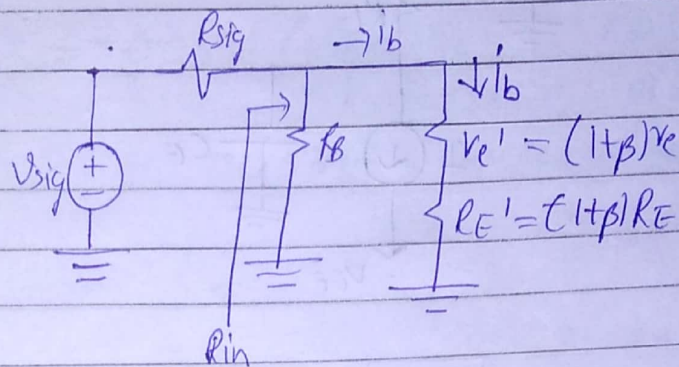 Rsig
→ib
↓ib
Vsig
+
-
RB
re' = (1+β)re
RE' = (1+β)RE
Rin